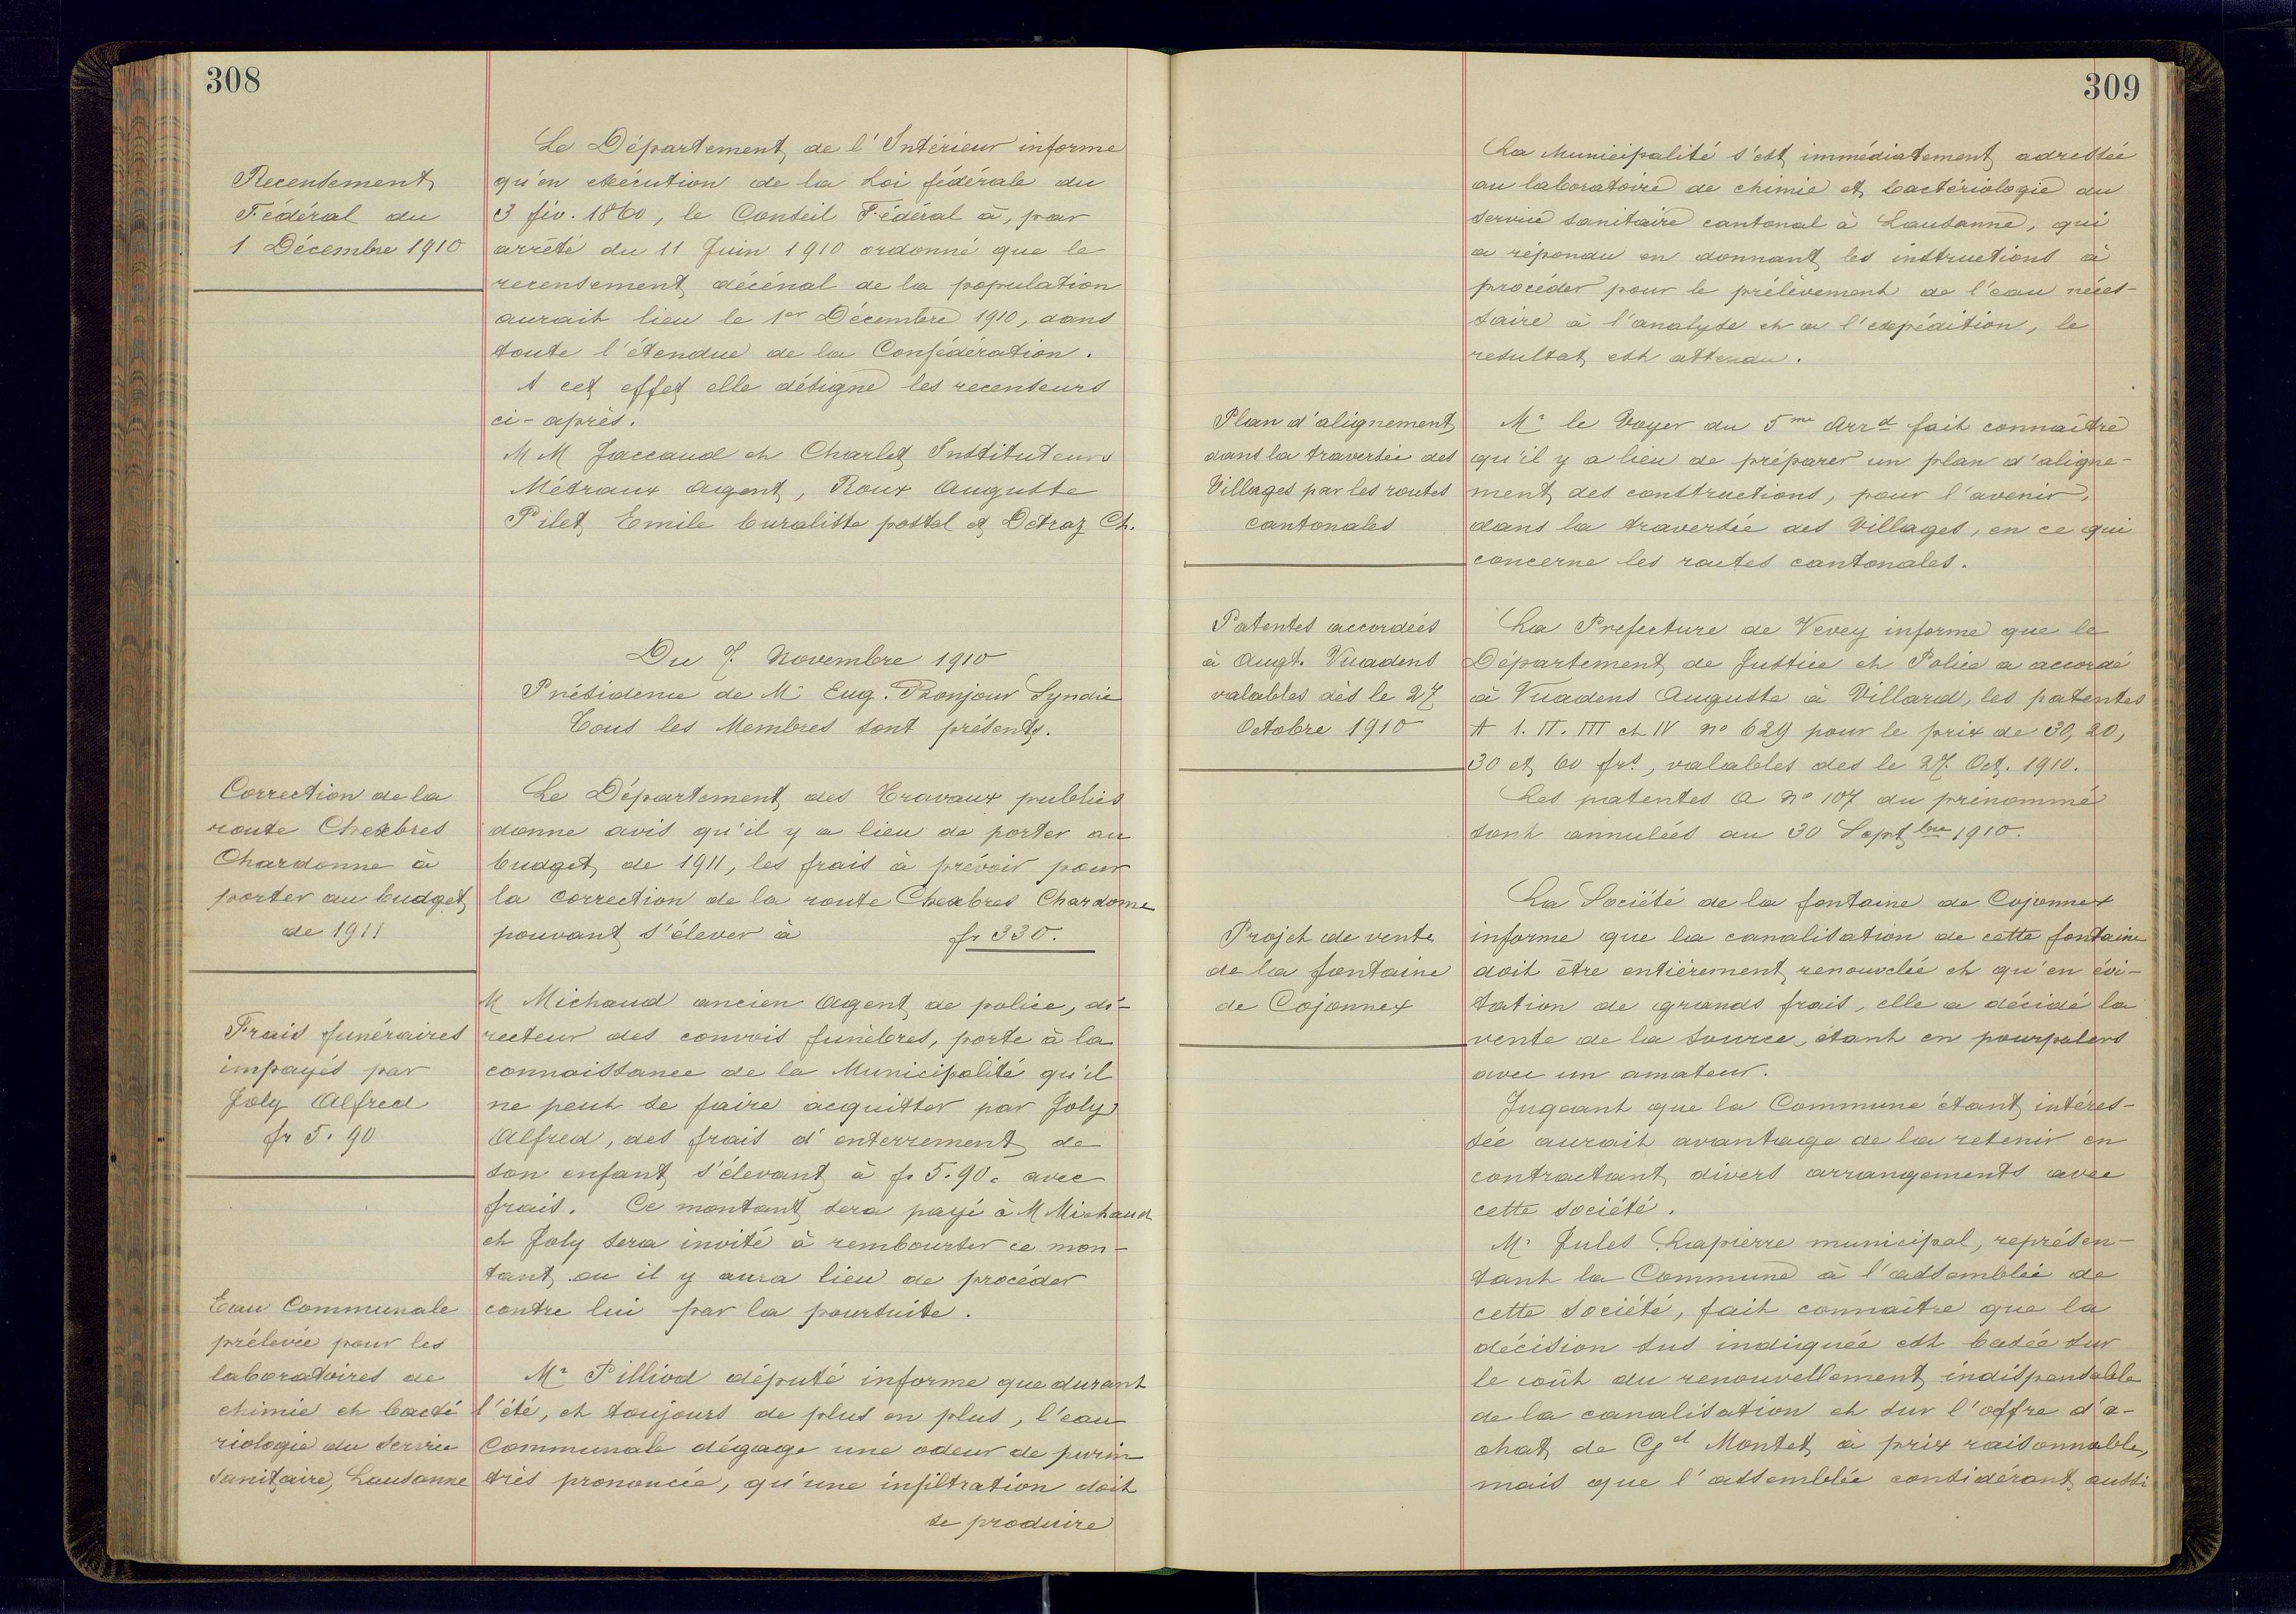 308
Recensement
Fédéral du
1 Décembre 1910
Le Département de l'Intérieur informe
qu'en exécution de la Loi fédérale du
3 fév. 1860, le Conseil Fédéral à, par
arrêté du 11 Juin 1910 ordonné que le
recensement décénal de la population
aurait lieu le 1er Décembre 1910, dans
toute l'étendue de la Confédération.
A cet effet elle désigne les recenseurs
ci-après.
MM Jaccaud et Charlet Instituteurs
Métraux Agent, Roux Auguste
Pilet Emile buraliste postal et Détraz Ch.
Du 7. Novembre 1910
Présidence de Mr Eug. Bonjour Syndic
Tous les Membres sont présents.
Correction de la
route Chexbres
Chardonne à
porter au budget
de 1911
Le Département des Travaux publics
donne avis qu'il y a lieu de porter au
budget de 1911, les frais à prévoir pour
la correction de la route Chexbres Chardonne
pouvant s'élever à fr 330.
Frais funéraires
impayés par
Joly Alfred
fr 5.90
M Michaud ancien Agent de police, di-
recteur des convois funèbres, porte à la
connaissance de la Municipalité qu'il
ne peut se faire acquitter par Joly
Alfred, des frais d'enterrement de
son enfant s'élevant à fr 5.90. avec
frais. Ce montant sera payé à M Michaud
et Joly sera invité à rembourser ce mon-
tant ou il y aura lieu de procéder
contre lui par la poursuite.
Eau Communale
prélevée pour les
laboratoires de
chimie et bacté
riologie du Service
Sanitaire, Lausanne
Mr Pilliod député informe que durant
l'été, et toujours de plus en plus, l'eau
Communale dégage une odeur de purin
très prononcée, qu'une infiltration doit
se produire
309
La Municipalité s'est immédiatement adressée
au laboratoire de chimie et bactériologie du
service sanitaire cantonal à Lausanne, qui
a répondu en donnant les instructions à
procéder pour le prélèvement de l'eau néces-
saire à l'analyse et a l'expédition, le
resultat est attendu.
Plan d'alignement
dans la traversée des
Villages par les routes
cantonales
Mr le Voyer du 5me Arrd fait connaître
qu'il y a lieu de préparer un plan d'aligne-
ment des constructions, pour l'avenir,
dans la traversée des Villages, en ce qui
concerne les routes cantonales.
Patentes accordées
à Augt. Vuadens
valables dès le 27
Octobre 1910
La Prefecture de Vevey informe que le
Département de Justice et Police a accordé
à Vuadens Auguste à Villard, les patentes
A 1. II. III et IV no 629 pour le prix de 30, 20,
30 et 60 frs, valables des le 27. Oct. 1910.
Les patentes A no 107 du prénommé
sont annulées au 30 Septbre 1910.
Projet de vente
de la fontaine
de Cojonnex
La Société de la fontaine de Cojonnex
informe que la canalisation de cette fontaine
doit être entièrement renouvelée et qu'en évi-
tation de grands frais, elle a décidé la
vente de la source, étant en pourpalers
avec un amateur.
Jugeant que la Commune étant intéres-
sée aurait avantage de la retenir en
contractant divers arrangements avec
cette société.
Mr Jules Lapierre municipal, représen-
tant la Commune à l'assemblée de
cette société, fait connaître que la
décision sus indiquée est basée sur
le coût du renouvellement indispensable
de la canalisation et sur l'offre d'a-
chat de Montet à prix raisonnable,
mais que l'assemblée considérant aussi